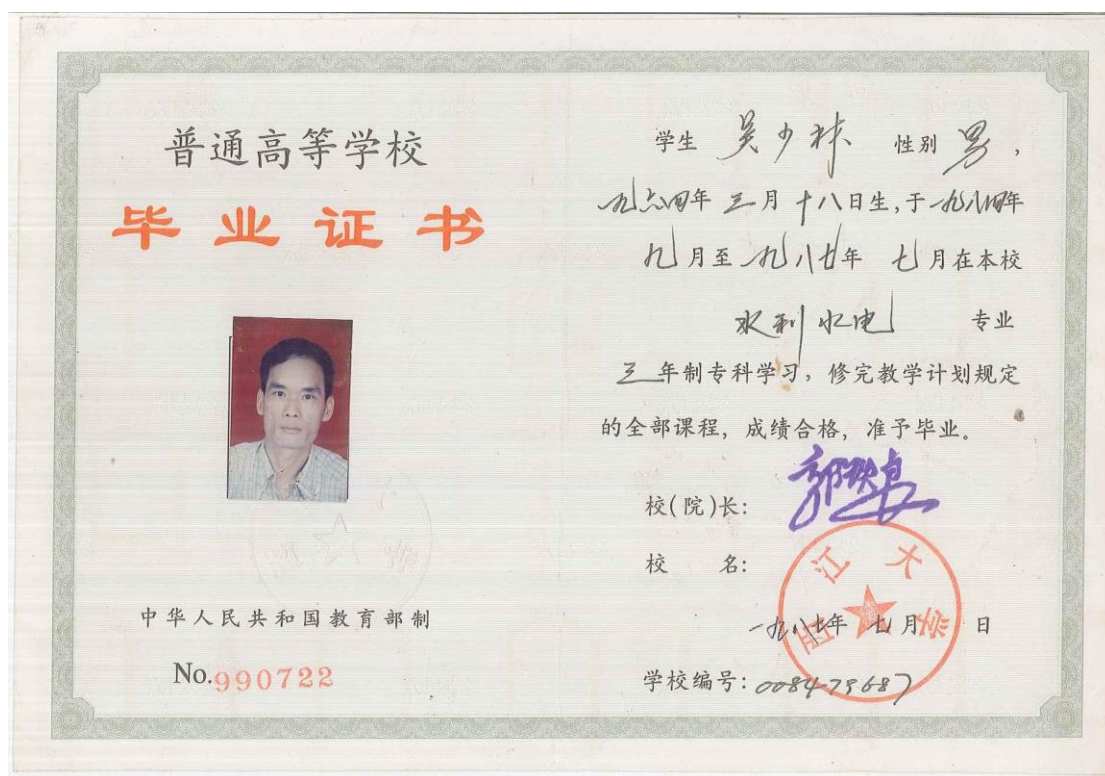 普通高等学校
毕业证书
中华人民共和国教育部制
No.990722
学生 吴少林 性别 男,
一九六四年 三月十八日生,于一九八四年
九月至一九八七年 七月在本校
水利水电 专业
三年制专科学习,修完教学计划规定
的全部课程,成绩合格,准予毕业。
校(院)长:
校 名:
西江大学
一九八七年 七月 日
学校编号:008479687